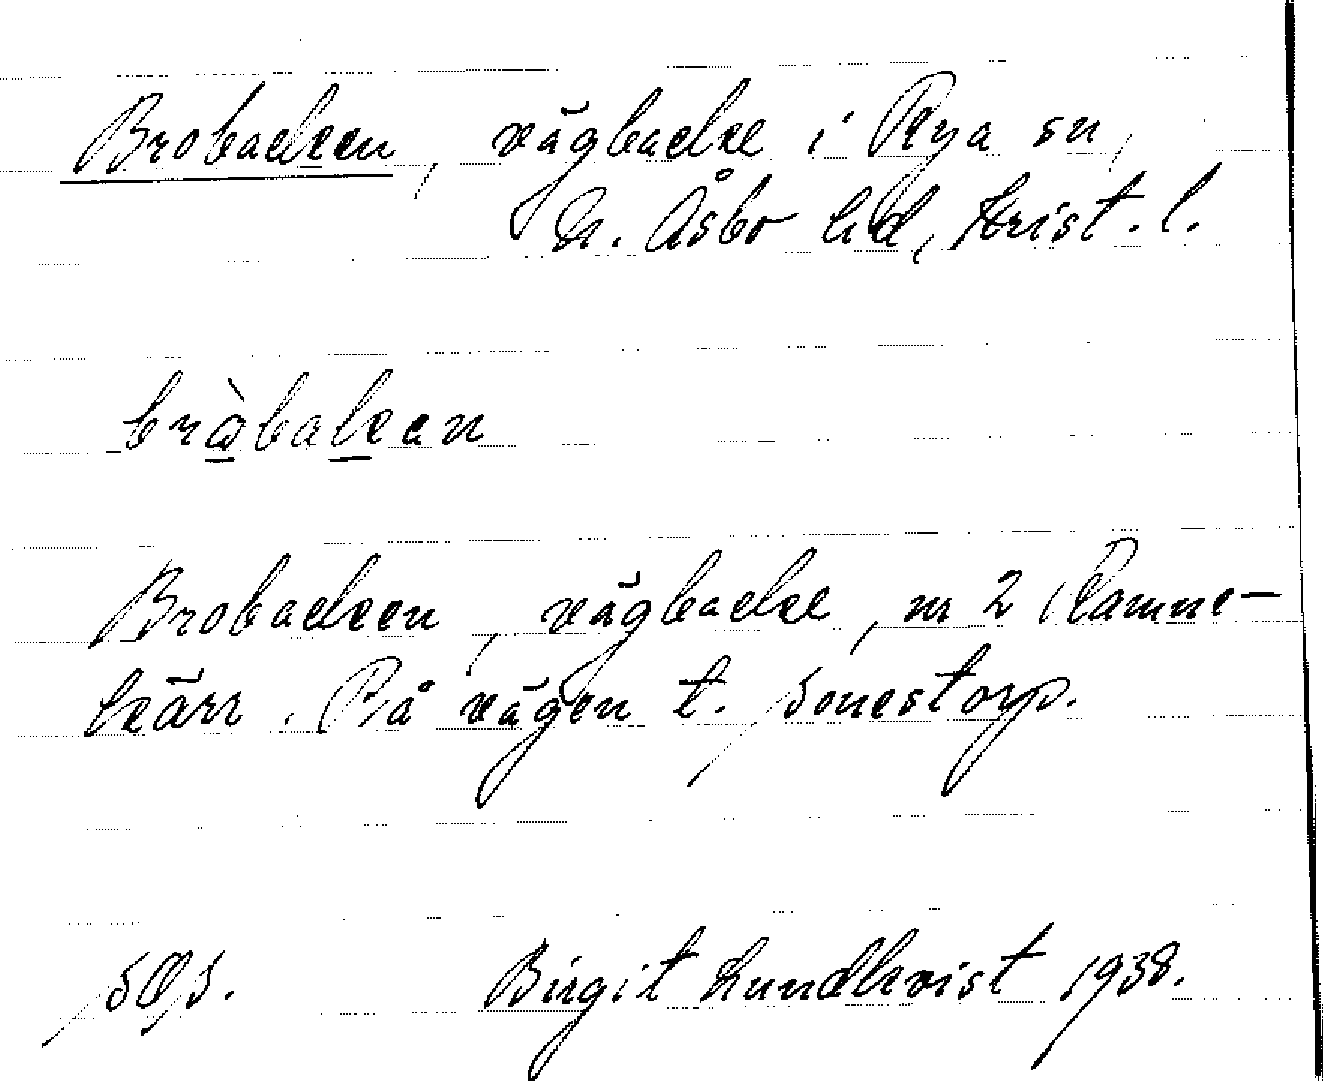 Brobacken, vägbacke i Rya sn,
N. Åsbo hd, Krist. l.
bràbakan
Brobacken, vägbacke, nr 2 Ramne-
kärr. På vägen t. Sonestorp.
Birgit Lundkvist 1938.